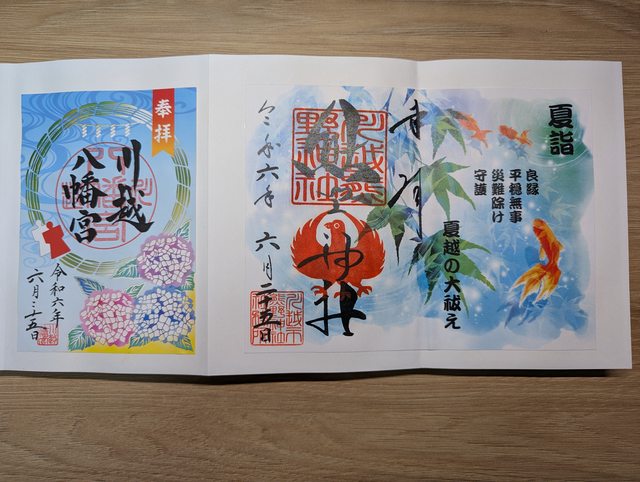 奉拝
川越
八幡宮
令和六年
六月二十五日
夏詣
良縁
平穏無事
災難除け
守護
夏越の大祓え
奉拝
川越熊
野神社
熊野神社
令和六年 六月二十五日